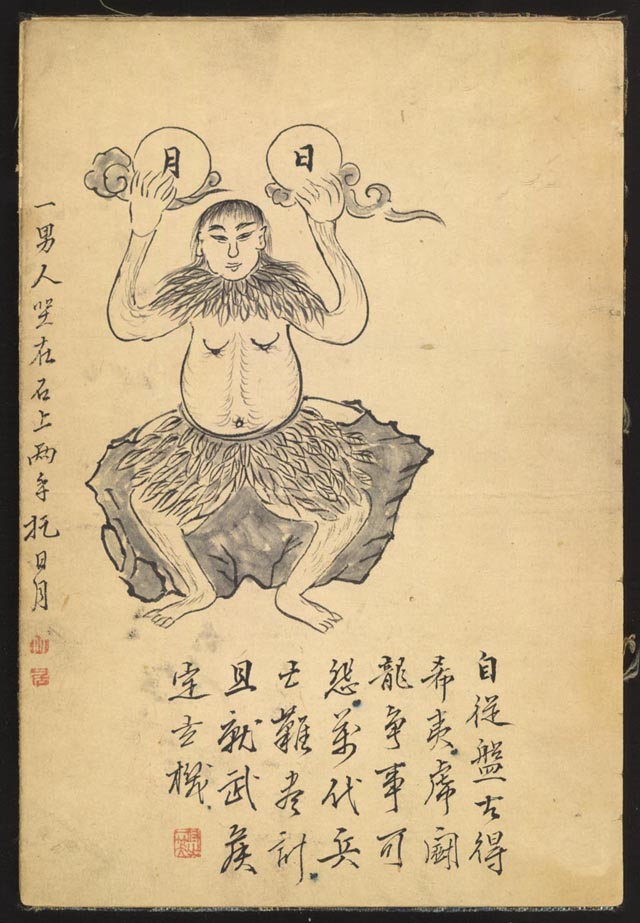 日
月
一男人坐在石上兩手托日月
自從盤古得
希夷虎鬪
龍爭事可
萬代兵
士難尽計
且就武侯
定玄機